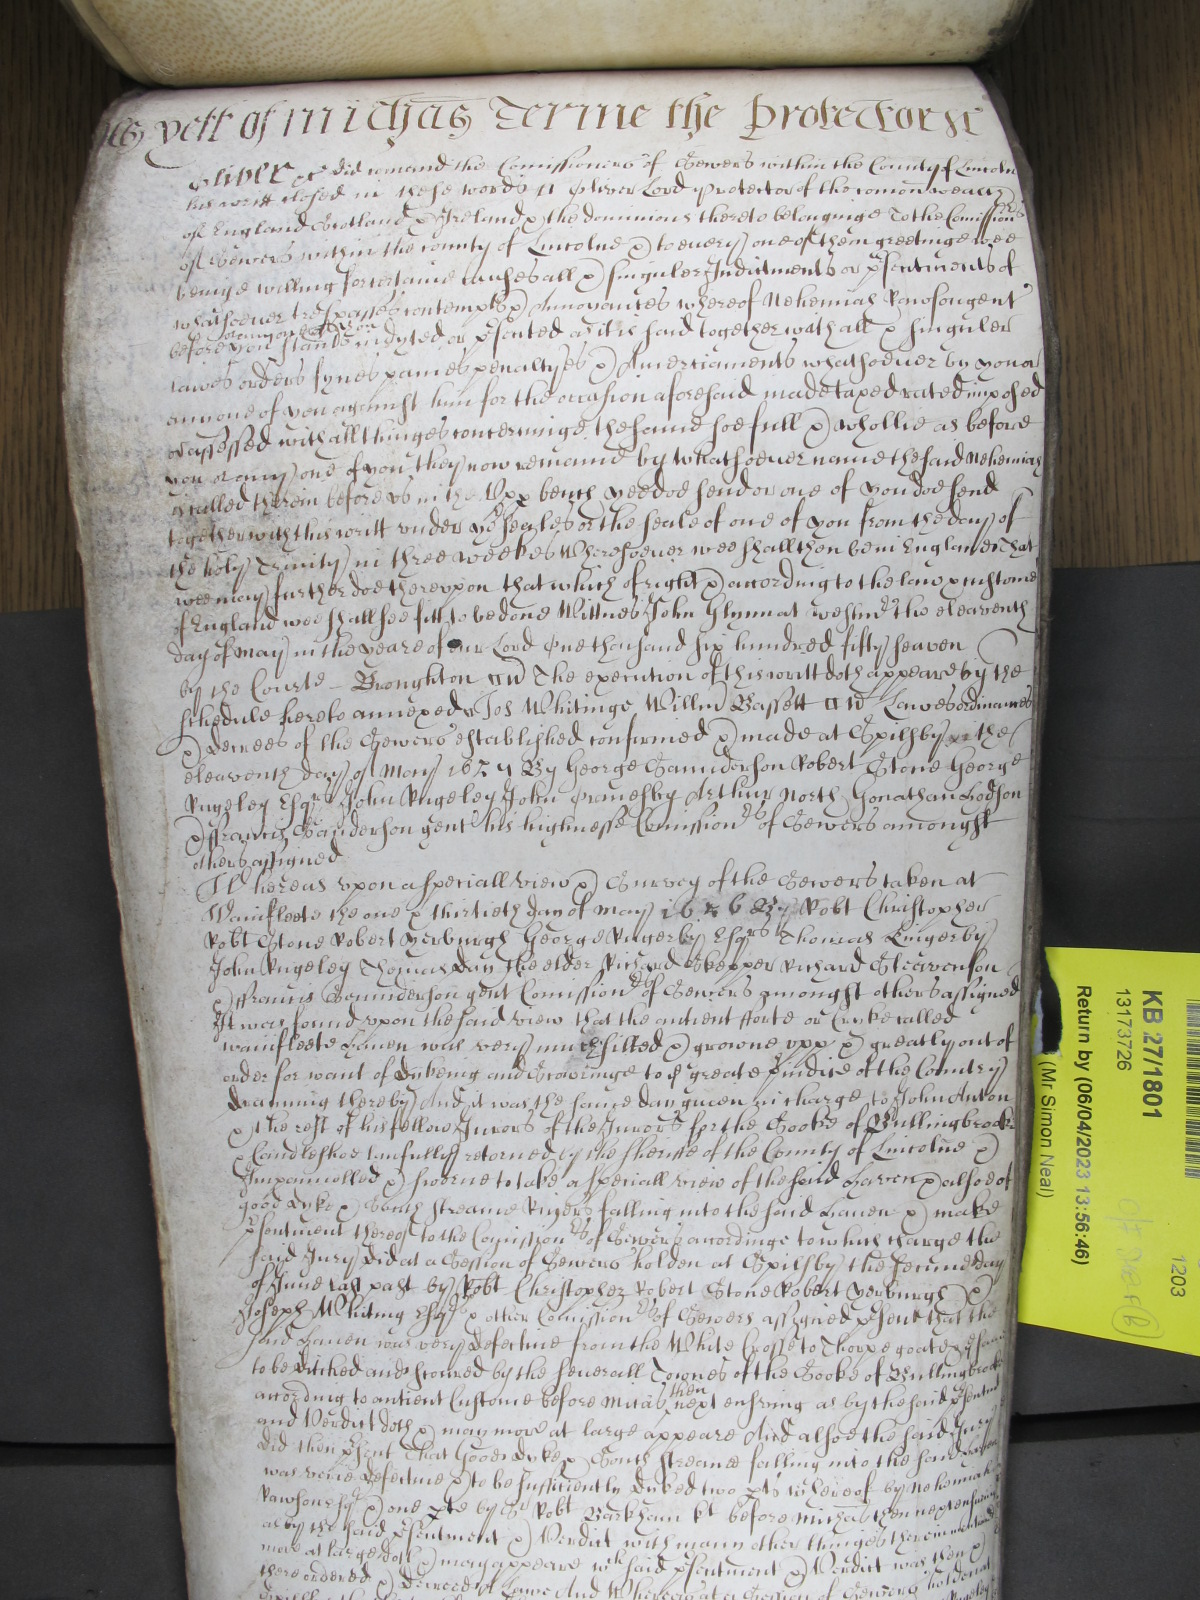 yett of Michas Terme the Protector &c
Oliver &c did comand the Comissioners of Sewers within the County of Lincoln
his writt closed in these words ss Oliver Lord Protector of the comonwealth
of England Scotland & Ireland & the dominions thereto belonginge To the Comissionrs
of Sewers within the county of Lincolne & to every one of them greetinge wee
beinge willing for certaine causes all & singuler Indictments or psentments of
whatsoever trespasses contempts & Annoyances whereof Nehemiah Rawson gent
before you stand indyted or psented as it is said together with all & singuler
lawes orders fynes paines penaltyes & Amerciaments whatsoever by you or
anie one of you against him for the occasion aforesaid made taxed rated imposed
or assessed with all thinges concerninge the same soe full & whollie as before
you or any one of you they now remaine by whatsoever name the said Nehemiah
is called therein before us in the Upp bench yee doe send or one of you doe send
together with this writt under yor seales or the seale of one of you from the day of
the holy Trinity in three weekes Wheresoever wee shall then be in England That
wee may further doe thereupon that which of right & according to the law & custome
of England wee shall see fitt to be done Wittnes John Glynn at Westmr the eleaventh
day of May in the yeare of our Lord one thousand six hundred fifty seaven
by the Courte - Broughton ss The execution of this writt doth appeare by the
schedule hereto annexed Jos Whitinge Willm Bassett ss Lawes ordinances
& decrees of the Sewers established confirmed & made at Spilsby the
eleaventh day of May 1657 By George Saunderson Robert Stone George
Rugeley Esqrs John Rugeley John Ormesby Arthur North Jonathan Hodson
& Francis Saunderson gent his highnesse Comissionrs of Sewers amongst
others assigned
Whereas upon a speciall view & Survey of the Sewers taken at
Wainfleete the one & thirtieth day of May 1656 By Robt Christopher
Robt Stone Robert Yerburgh George Esqrs Thomas
John Rugeley Thomas Day the elder Richard Skepper Richard Steavenson
& Francis Saunderson gent Comissionrs of Sewers amongst others assigned
It was found upon the said view that the antient fforte or Creeke called
wainfleete Haven was very much silted & growne upp & greatly out of
order for want of dykeing and Scowringe to ye greate piudice of the Country
draining thereby And it was the same day given in charge to John Anton
& the rest of his fellow Jurors of the Jurors for the Sooke of Bullingbrooke
& Candleshoe lawfully returned by the Sherife of the County of Lincolne &
Impannelled & sworne to take a speciall view of the said Haven & alsoe of
good dyke & South streame Rivers falling into the said Haven & make
psentment thereof to the Comissionrs of Sewers accordinge to which charge the
said Jury did at a Session of Sewers holden at Spilsby the second day
of June last past by Robt Christopher Robert Stone Robert Yerburgh &
Joseph Whiting Esqrs & other Comissionrs of Sewers assigned psent that the
said Haven was very defective from the White Crosse to Thorpe goate &
to be ditched and scoured by the severall Townes of the Sooke of Bullingbrooke
according to antient Custome before Michas then next ensuing as by the said psentment
and Verdict doth & may more at large appeare And alsoe the said Jury
did then psent That Good dyke & South streame falling into the said haven
was verie defective & to be sufficiently dyked two pts whereof by Nehemiah
Rawson Esqr & one pte by Sr Robt Barkham kt before Michas then next ensuing
as by the said psentment & Verdict with many other thinges therein mentioned
more at large doth & may appeare wch said psentment & Verdict was then &
there ordered & decreed a Lawe And Whereas at a Session of Sewers holden at
KB 271801
13173726
Return by (06/04/2023 13:56:46)
(Mr Simon Neal)
1203